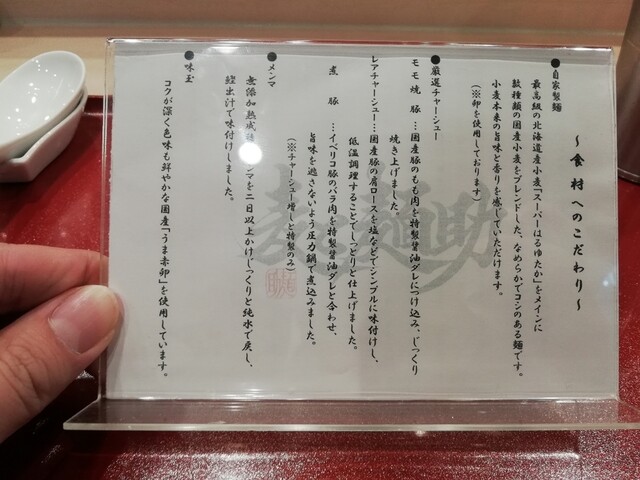 ～食材へのこだわり～
●自家製麺
最高級の北海道産小麦「スーパーはるゆたか」をメインに
数種類の国産小麦をブレンドした、なめらかでコシのある麺です。
小麦本来の旨味と香りを感じていただけます。
(※卵を使用しております)
●厳選チャーシュー
モモ焼豚…国産豚のもも肉を特製醤油ダレにつけ込み、じっくり
焼き上げました。
レアチャーシュー…国産豚の肩ロースを塩などでシンプルに味付けし、
低温調理することでしっとりと仕上げました。
煮豚…イベリコ豚のバラ肉を特製醤油ダレと合わせ、
旨味を逃さないよう圧力鍋で煮込みました。
(※チャーシュー増しと特製のみ)
●メンマ
無添加熟成メンマを二日以上かけじっくりと純水で戻し、
鰹出汁で味付けしました。
●味玉
コクが深く色味も鮮やかな国産「うま赤卵」を使用しています。
麦と麺助